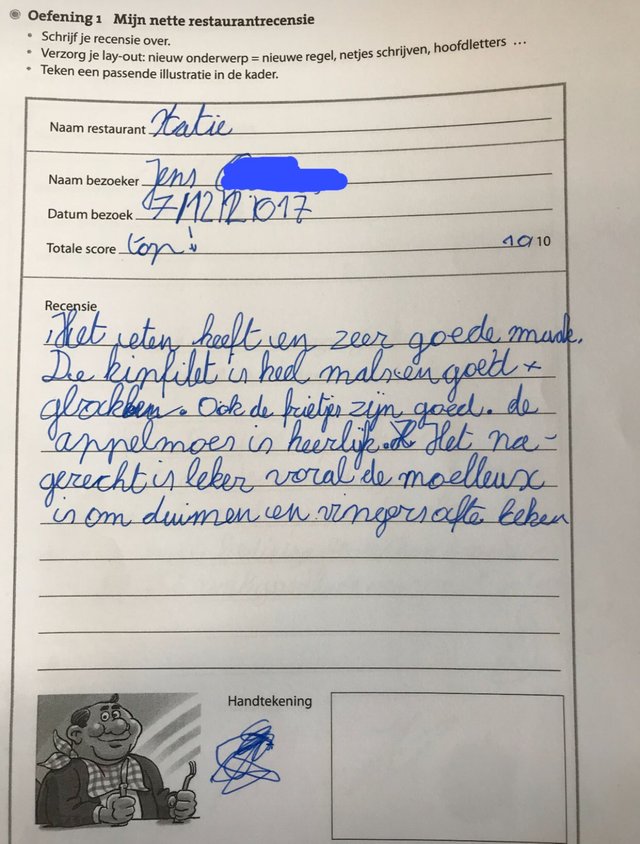 Oefening 1 Mijn nette restaurantrecensie
• Schrijf je recensie over.
• Verzorg je lay-out: nieuw onderwerp = nieuwe regel, netjes schrijven, hoofdletters ...
• Teken een passende illustratie in de kader.
Naam restaurant Katie
Naam bezoeker Jens
Datum bezoek 7/12/2017
Totale score top! 10/10
Recensie
Het eten heeft een zeer goede smaak.
De kipfilet is heel mals en goed
Ook de frietjes zijn goed. de
appelmoes is heerlijk. Het na-
gerecht is leker voral de moelleux
is om duimen en vingers afte leken
Handtekening